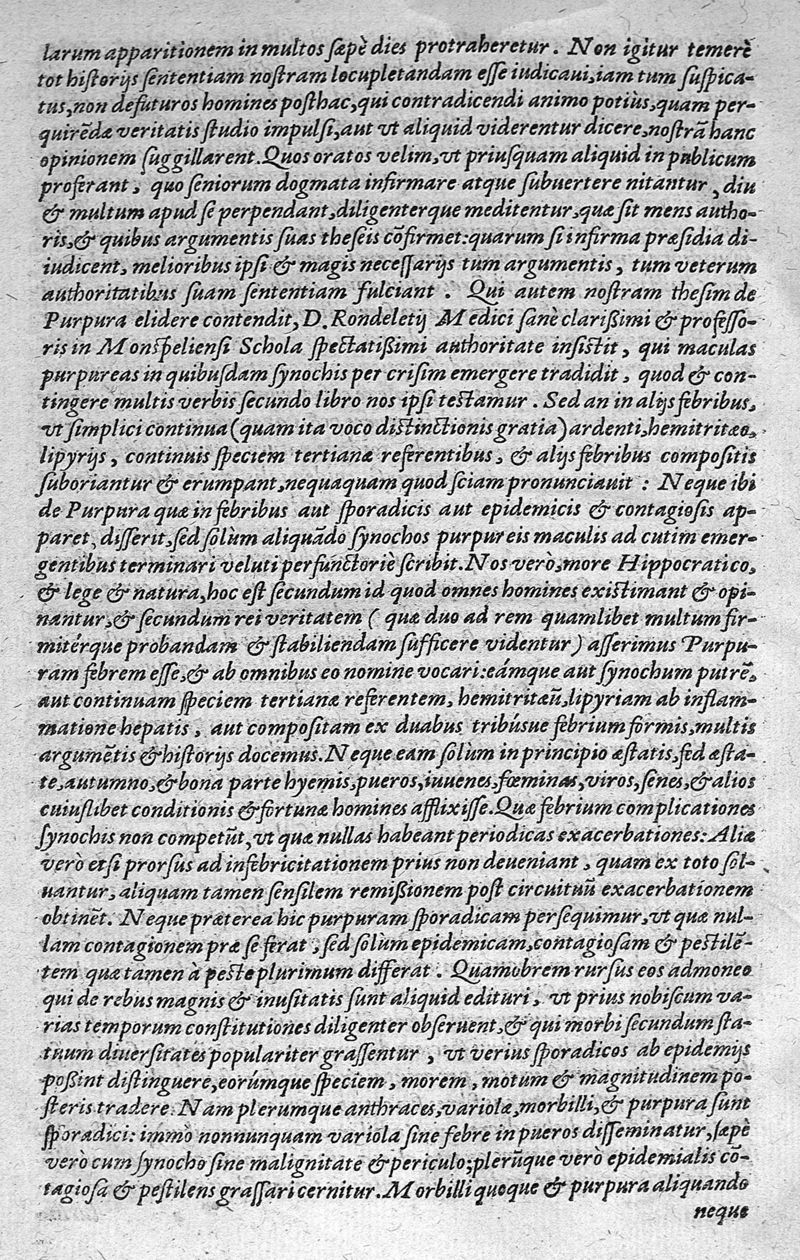 larum apparitionem in multos sæpè dies protraheretur. Non igitur temerè
tot historijs sententiam nostram locupletandam esse iudicaui, iam tum suspica-
tus, non defuturos homines posthac, qui contradicendi animo potiùs, quam per-
quirẽdæ veritatis studio impulsi, aut vt aliquid viderentur dicere, nostrã hanc
opinionem suggillarent. Quos oratos velim, vt priusquam aliquid in publicum
proferant, quo seniorum dogmata infirmare atque subuertere nitantur, diu
& multum apud se perpendant, diligenterque meditentur, quæ sit mens autho-
ris, & quibus argumentis suas theseis cõfirmet: quarum si infirma præsidia di-
iudicent, melioribus ipsi & magis necessarijs tum argumentis, tum veterum
authoritatibus suam sententiam fulciant. Qui autem nostram thesim de
Purpura elidere contendit, D. Rondeletij Medici sanè clarißimi & professo-
ris in Monspeliensi Schola spectatißimi authoritate insistit, qui maculas
purpureas in quibusdam synochis per crisim emergere tradidit, quod & con-
tingere multis verbis secundo libro nos ipsi testamur. Sed an in alijs febribus,
vt simplici continua (quam ita voco distinctionis gratia) ardenti, hemitritæo,
lipyrijs, continuis speciem tertianæ referentibus, & alijs febribus compositis
suboriantur & erumpant, nequaquam quod sciam pronunciauit: Neque ibi
de Purpura quæ in febribus aut sporadicis aut epidemicis & contagiosis ap-
paret, disserit, sed solùm aliquãdo synochos purpureis maculis ad cutim emer-
gentibus terminari veluti perfunctoriè scribit. Nos verò, more Hippocratico,
& lege & natura, hoc est secundum id quod omnes homines existimant & opi-
nantur, & secundum rei veritatem (quæ duo ad rem quamlibet multum fir-
mitérque probandam & stabiliendam sufficere videntur) asserimus Purpu-
ram febrem esse, & ab omnibus eo nomine vocari: eámque aut synochum putrẽ,
aut continuam speciem tertianæ referentem, hemitritæũ, lipyriam ab inflam-
matione hepatis, aut compositam ex duabus tribúsue febrium formis, multis
argumẽtis & historijs docemus. Neque eam solùm in principio æstatis, sed æsta-
te, autumno, & bona parte hyemis, pueros, iuuenes, fœminas, viros, senes, & alios
cuiuslibet conditionis & fortunæ homines afflixisse. Quæ febrium complicationes
synochis non competũt, vt quæ nullas habeant periodicas exacerbationes: Aliæ
verò etsi prorsus ad infebricitationem prius non deueniant, quam ex toto sol-
uantur, aliquam tamen sensilem remißionem post circuituũ exacerbationem
obtinẽt. Neque præterea hic purpuram sporadicam persequimur, vt quæ nul-
lam contagionem præ se ferat, sed solùm epidemicam, contagiosam & pestilẽ-
tem quæ tamen à peste plurimum differat. Quamobrem rursus eos admoneo
qui de rebus magnis & inusitatis sunt aliquid edituri, vt prius nobiscum va-
rias temporum constitutiones diligenter obseruent, & qui morbi secundum sta-
tuum diuersitates populariter grassentur, vt verius sporadicos ab epidemijs
poßint distinguere, eorúmque speciem, morem, motum & magnitudinem po-
steris tradere. Nam plerumque anthraces, variolæ, morbilli, & purpura sunt
sporadici: immò nonnunquam variola sine febre in pueros disseminatur, sæpè
verò cum synocho sine malignitate & periculo; plerũque verò epidemialis cõ-
tagiosa & pestilens grassari cernitur. Morbilli quoque & purpura aliquando
neque